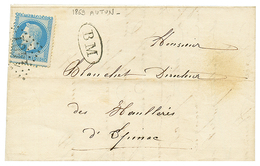 1868 AUTUN -
BM
Monsieur
Blanchet Directeur
des Houillères
d'Epinac